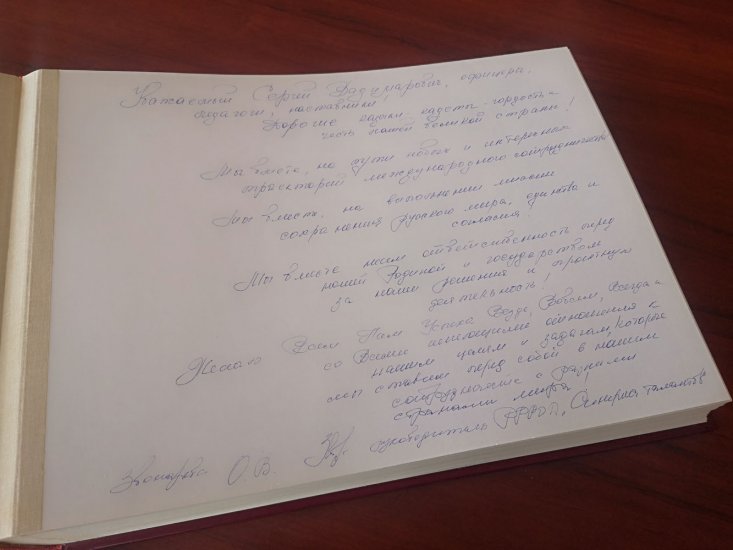 Уважаемый Сергей Владимирович, офицеры,
педагоги, наставники,
Дорогие кадеты - гордость и
честь нашей великой страны!
Мы вместе, на пути новых и интересных
траекторий международного сотрудничества
Мы вместе, на выполнении миссии
сохранения русского мира, единства и
согласия!
Мы вместе несем ответственность перед
нашей Родиной и государством
за наши решения и проектную
деятельность!
Желаю Всем Нам Успеха Везде, Во всем, Всегда и
со Всеми имеющими отношения к
нашим целям и задачам, которые
мы ставим перед собой в нашем
сотрудничестве с разными
странами мира!
О.В. руководитель